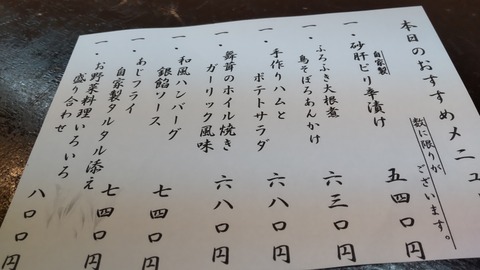 本日のおすすめメニュ
数に限りがございます。
一、自家製
砂肝ピリ辛漬け
五四〇円
一、ふろふき大根煮
鳥そぼろあんかけ
六三〇円
一、手作りハムと
ポテトサラダ
六八〇円
一、舞茸のホイル焼き
ガーリック風味
六八〇円
一、和風ハンバーグ
銀餡ソース
七四〇円
一、あじフライ
自家製タルタル添え
七四〇円
一、お野菜料理いろいろ
盛り合わせ
八〇〇円